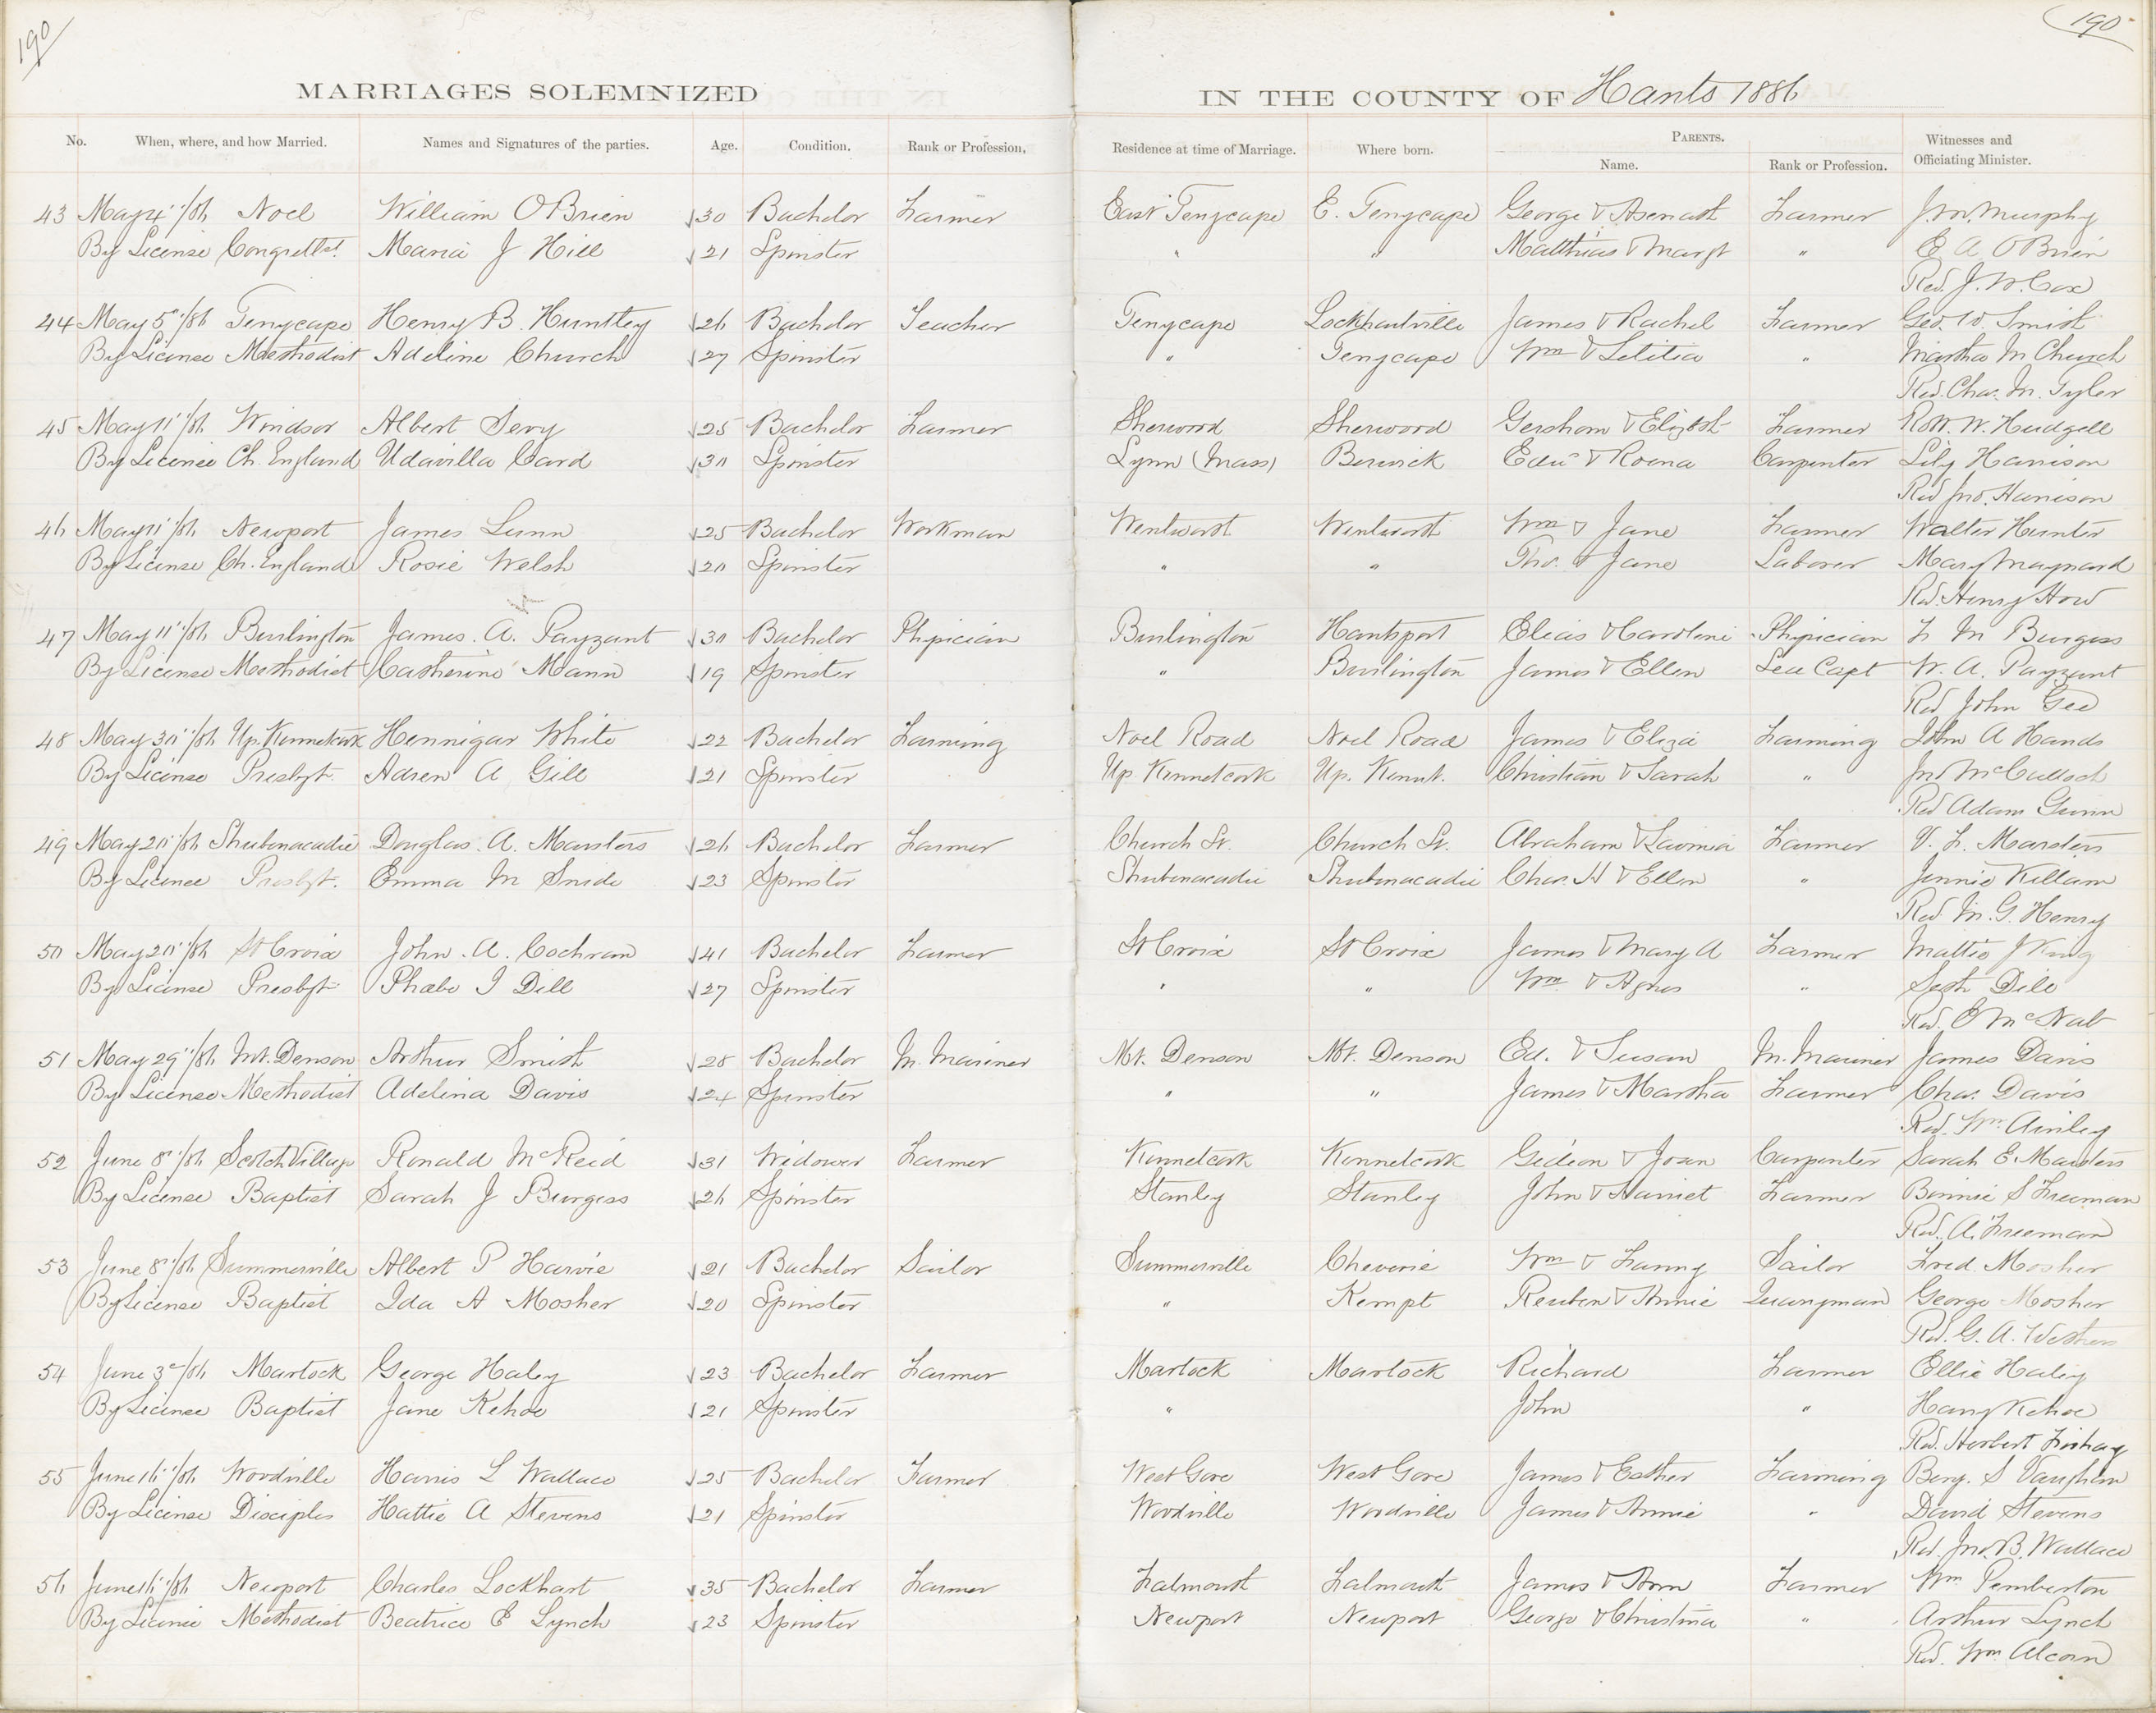 190
190
MARRIAGES SOLEMNIZED IN THE COUNTY OF Hants 1886
No. When, where, and how Married. Names and Signatures of the parties. Age. Condition. Rank or Profession, Residence at time of Marriage. Where born. PARENTS. Witnesses and Officiating Minister.
Name. Rank or Profession.
43 May 4"/86 Noel William OBrien 30 Bachelor Farmer East Tenycape E. Tenycape George & Asenath Farmer J. M. Murphy
By License Maria J Hill 21 Spinster " " Matthias & Margt " E A OBrien
Rev. J. W. Cox
44 May 5"/86 Tenycape Henry B. Huntley 26 Bachelor Teacher Tenycape Lockhartville James & Rachel Farmer Geo. W. Smith
By License Methodist Adeline Church 27 Spinster " Tenycape Wm & Letitia " Martha M Church
Rev. Chas. M. Tyler
45 May 11"/86 Windsor Albert Sevy 25 Bachelor Farmer Sherwood Sherwood Gersham & Elizbth Farmer W. Hudgell
By License Ch. England Udavilla Card 30 Spinster Lynn (Mass) Berwick Edw & Roena Carpenter Lily Harrison
Rev Jno. Harrison
46 May 11"/86 Newport James Lunn 25 Bachelor Workman Wentworth Wentworth Wm & Jane Farmer Walter Hunter
By License Ch. England Rosie Welsh 20 Spinster " " Tho. & Jane Laborer Mary Maynard
Rev. Henry How
47 May 11"/86 Burlington James. A. Payzant 30 Bachelor Physician Burlington Hantsport Elias & Caroline Physician F M Burgess
By License Methodist Catherine Mann 19 Spinster " Burlington James & Ellen Sea Capt W. A. Payzant
Rev John Gee
48 May 30"/86 Up. Kennetcook Hennigar White 22 Bachelor Farming Noel Road Noel Road James & Eliza Farming John A Hands
By License Presbyt. Adren A Gill 21 Spinster Up. Kennetcook Up. Kennt. Christian & Sarah " Jno McCulloch
Rev Adam Gunn
49 May 20"/86 Shubenacadie Douglas. A. Marsters 26 Bachelor Farmer Church St. Church St. Abraham & Lavinia Farmer V. F. Marsters
By License Presbyt. Emma M Snide 23 Spinster Shubenacadie Shubenacadie Chas. H & Ellen " Jennie Killam
Rev. M. G. Henry
50 May 20"/86 St Croix John. A. Cochran 41 Bachelor Farmer St Croix St Croix James & Mary A Farmer Mattie J King
By License Presbyt Phebe I Dill 27 Spinster " " Wm & Agnes " Seth Dill
Rev. E McNab
51 May 29"/86 Mt. Denson Arthur Smith 28 Bachelor M. Mariner Mt. Denson Mt. Denson Ed. & Susan M. Mariner James Davis
By License Methodist Adelina Davis 24 Spinster " " James & Martha Farmer Chas. Davis
Rev. Wm. Ainley
52 June 8"/86 Scotch Village Ronald McReid 31 Widower Farmer Kennetcook Kennetcook Gideon & Joan Carpenter Sarah E. Marsters
By License Baptist Sarah J Burgess 26 Spinster Stanley Stanley John & Harriet Farmer Binnie S Freeman
Rev. A. Freeman
53 June 8"/86 Summerville Albert P Harvie 21 Bachelor Sailor Summerville Cheverie Wm & Fanny Sailor Fred. Mosher
By License Baptist Ida A Mosher 20 Spinster " Kempt Reuben & Annie Quarryman George Mosher
Rev. G. A. Weathers
54 June 3/86 Martock George Haley 23 Bachelor Farmer Martock Martock Richard Farmer Ellie Haley
By License Baptist Jane Kehoe 21 Spinster " John " Harry Kehoe
Rev. Herbert
55 June 16"/86 Woodville Harris L Wallace 25 Bachelor Farmer West Gore West Gore James & Esther Farming Benj. S Vaughan
By License Disciples Hattie A Stevens 21 Spinster Woodville Woodville James & Annie " David Stevens
Rev. Jno. B. Wallace
56 June 16"/86 Newport Charles Lockhart 35 Bachelor Farmer Falmouth Falmouth James & Ann Farmer Wm Pemberton
By License Methodist Beatrice E Lynch 23 Spinster Newport Newport George & Christina " Arthur Lynch
Rev. Wm Alcorn